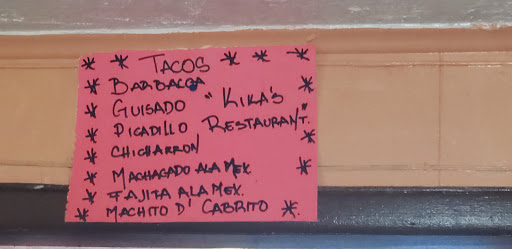 * * TACOS * * *
* BARBACOA
* GUISADO "KIKA'S
* PICADILLO RESTAURANT."
* CHICHARRON *
* MACHACADO ALA MEX. *
* FAJITA ALA MEX.
* MACHITO D' CABRITO *